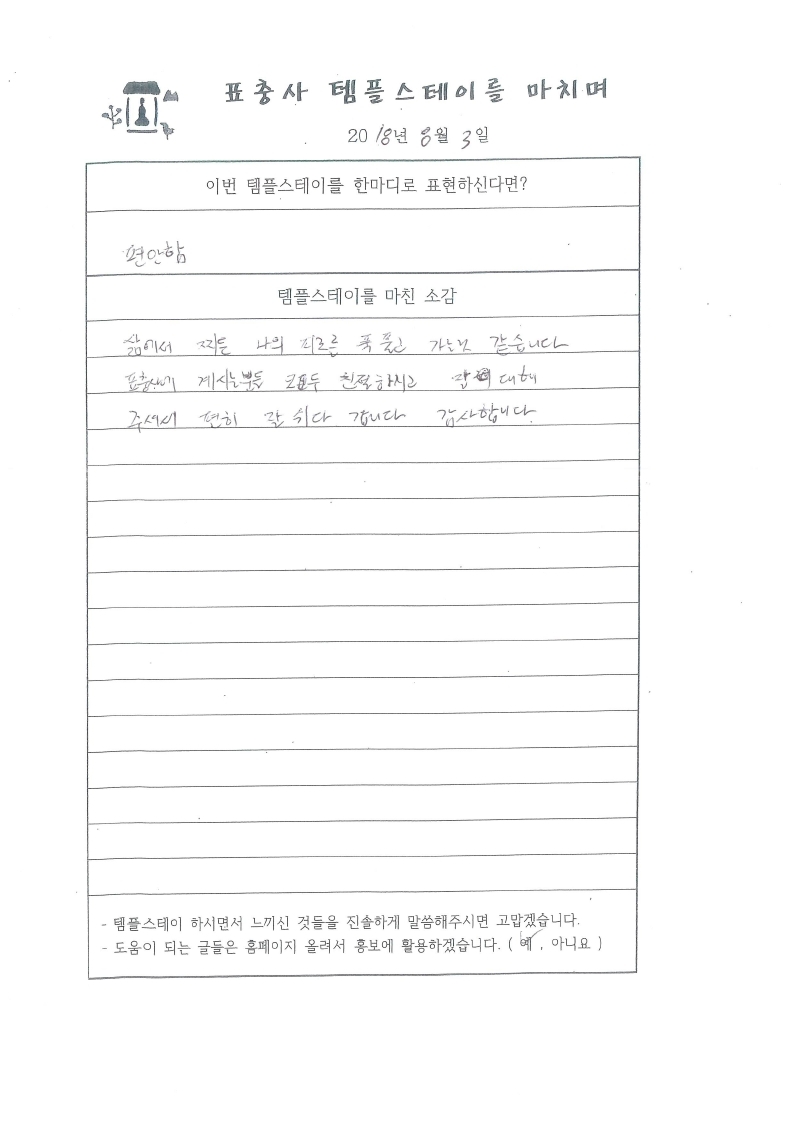 표충사 템플스테이를 마치며
2018년 8월 3일
이번 템플스테이를 한마디로 표현하신다면?
편안함
템플스테이를 마친 소감
삶에서 찌든 나의 피로를 푹 풀고 가는것 같습니다
표충사에 계시는분들 모두 친절하시고 잘 대해
주셔서 편히 잘 쉬다 갑니다 감사합니다.
- 템플스테이 하시면서 느끼신 것들을 진솔하게 말씀해주시면 고맙겠습니다.
- 도움이 되는 글들은 홈페이지 올려서 홍보에 활용하겠습니다. ( 예 , 아니요 )